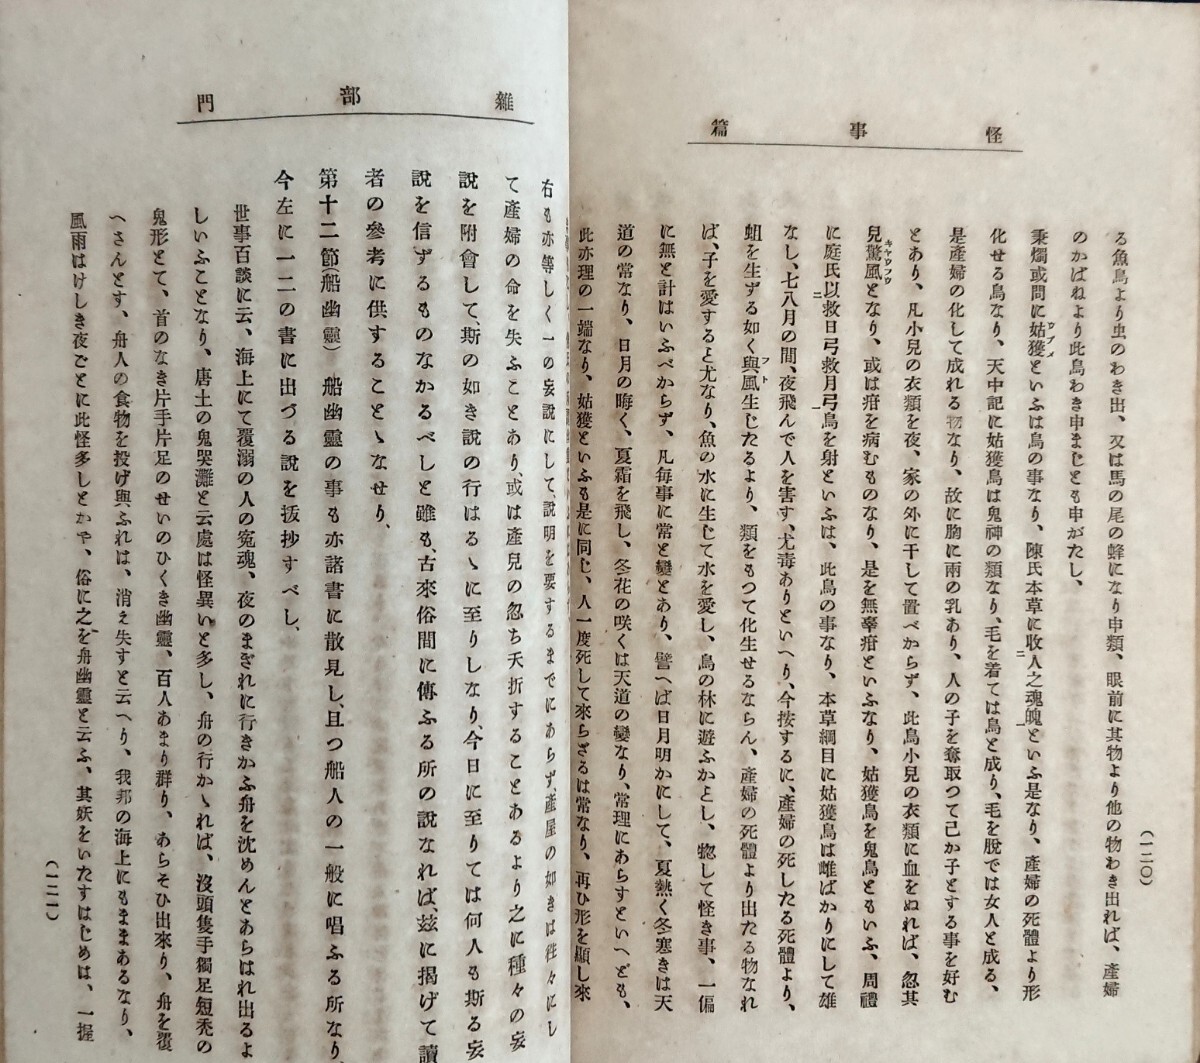 怪事篇
る魚鳥より虫のわき出、又は馬の尾の蜂になり申類、眼前に其物より他の物わき出れば、產婦
のかばねより此鳥わき申まじとも申がたし、
秉燭或問に姑獲といふは鳥の事なり、陳氏本草に收人之魂魄といふ是なり、產婦の死體より形
化せる鳥なり、天中記に姑獲鳥は鬼神の類なり、毛を着ては鳥と成り、毛を脫では女人と成る、
是產婦の化して成れる物なり、故に胸に兩の乳あり、人の子を奪取つて己か子とする事を好む
とあり、凡小兒の衣類を夜、家の外に干して置べからず、此鳥小兒の衣類に血をぬれば、忽其
兒驚風となり、或は疳を病むものなり、是を無辜疳といふなり、姑獲鳥を鬼鳥ともいふ、周禮
に庭氏以救日弓救月弓鳥を射といふは、此鳥の事なり、本草綱目に姑獲鳥は雌ばかりにして雄
なし、七八月の間、夜飛んで人を害す、尤毒ありといへり、今按するに、產婦の死したる死體より、
蛆を生ずる如く與風生じたるより、類をもつて化生せるならん、產婦の死體より出たる物なれ
ば、子を愛すると尤なり、魚の水に生じて水を愛し、鳥の林に遊ふかとし、惣して怪き事、一偏
に無と計はいふべからず、凡每事に常と變とあり、譬へば日月明かにして、夏熱く冬寒きは天
道の常なり、日月の晦く、夏霜を飛し、冬花の咲くは天道の變なり、常理にあらすといへども、
此亦理の一端なり、姑獲といふも是に同じ、人一度死して來らざるは常なり、再ひ形を顯し來
(一二〇)
雜部門
右も亦等しく一の妄說にして、說明を要するまでにあらず、產屋の如きは往々にし
て產婦の命を失ふことあり、或は產兒の忽ち夭折することあるより之に種々の妄
說を附會して、斯の如き說の行はるゝに至りしなり、今日に至りては何人も斯る妄
說を信ずるものなかるべしと雖も、古來俗間に傳ふる所の說なれば、玆に揭げて讀
者の參考に供することゝなせり、
第十二節(船幽靈) 船幽靈の事も亦諸書に散見し、且つ船人の一般に唱ふる所なり、
今左に一二の書に出づる說を抜抄すべし、
世事百談に云、海上にて覆溺の人の寃魂、夜のまぎれに行きかふ舟を沈めんとあらはれ出るよ
しいふことなり、唐土の鬼哭灘と云處は怪異いと多し、舟の行かゝれば、沒頭隻手獨足短禿の
鬼形とて、首のなき片手片足のせいのひくき幽靈、百人あまり群り、あらそひ出來り、舟を覆
へさんとす、舟人の食物を投げ與ふれは、消え失すと云へり、我邦の海上にもままあるなり、
風雨はけしき夜ごとに此怪多しとかや、俗に之を舟幽靈と云ふ、其妖をいたすはじめは、一握
(一二一)